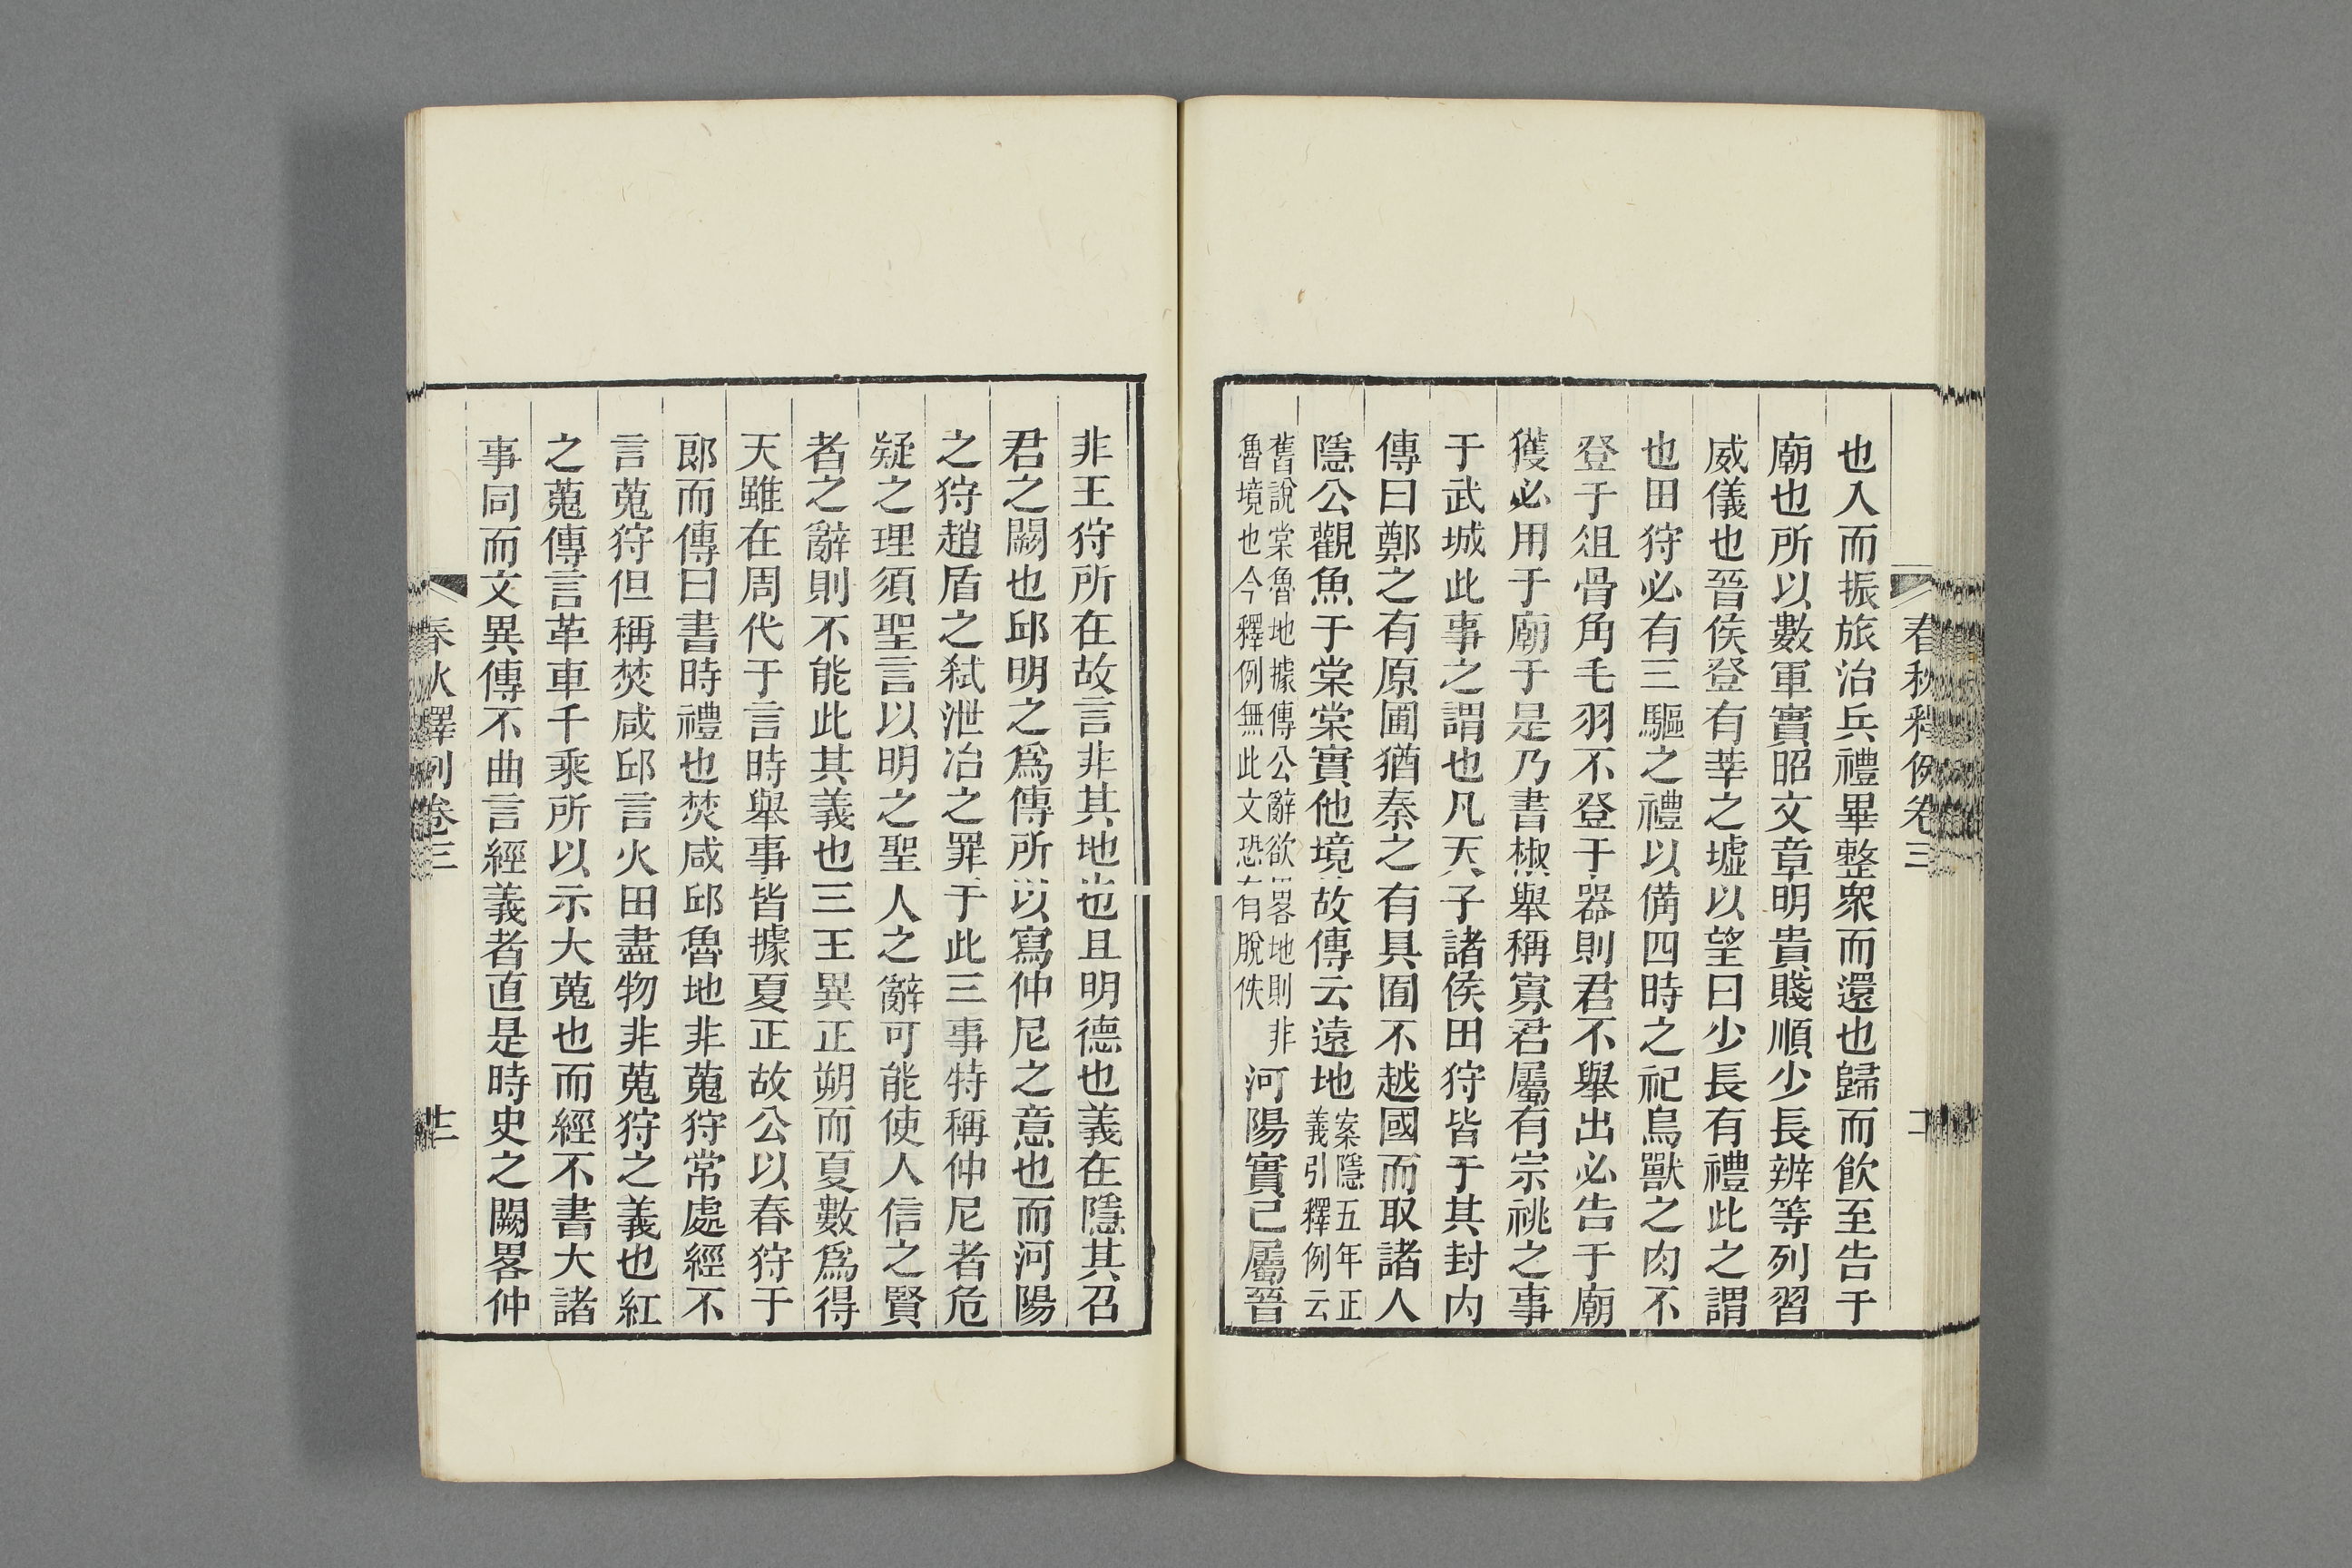 也入而振旅治兵禮畢整衆而還也歸而飮至告于
廟也所以數軍實昭文章明貴賤順少長辨等列習
威儀也晉侯登有莘之墟以望曰少長有禮此之謂
也田狩必有三驅之禮以備四時之祀鳥獸之肉不
登于俎骨角毛羽不登于器則君不舉出必告于廟
獲必用于廟于是乃書椒舉稱寡君屬有宗祧之事
于武城此事之謂也凡天子諸侯田狩皆于其封内
傳曰鄭之有原圃猶秦之有具囿不越國而取諸人
隱公觀魚于棠棠實他境故傳云遠地案隱五年正
義引釋例云
舊說棠魯地據傳公辭欲畧地則非
魯境也今釋例無此文恐有脫佚
河陽實已屬晉
非王狩所在故言非其地也且明德也義在隱其召
君之闕也邱明之爲傳所以寫仲尼之意也而河陽
之狩趙盾之弑泄冶之罪于此三事特稱仲尼者危
疑之理須聖言以明之聖人之辭可能使人信之賢
者之辭則不能此其義也三王異正朔而夏數爲得
天雖在周代于言時舉事皆據夏正故公以春狩于
郎而傳曰書時禮也焚咸邱魯地非蒐狩常處經不
言蒐狩但稱焚咸邱言火田盡物非蒐狩之義也紅
之蒐傳言革車千乘所以示大蒐也而經不書大諸
事同而文異傳不曲言經義者直是時史之闕畧仲
春秋釋例卷三